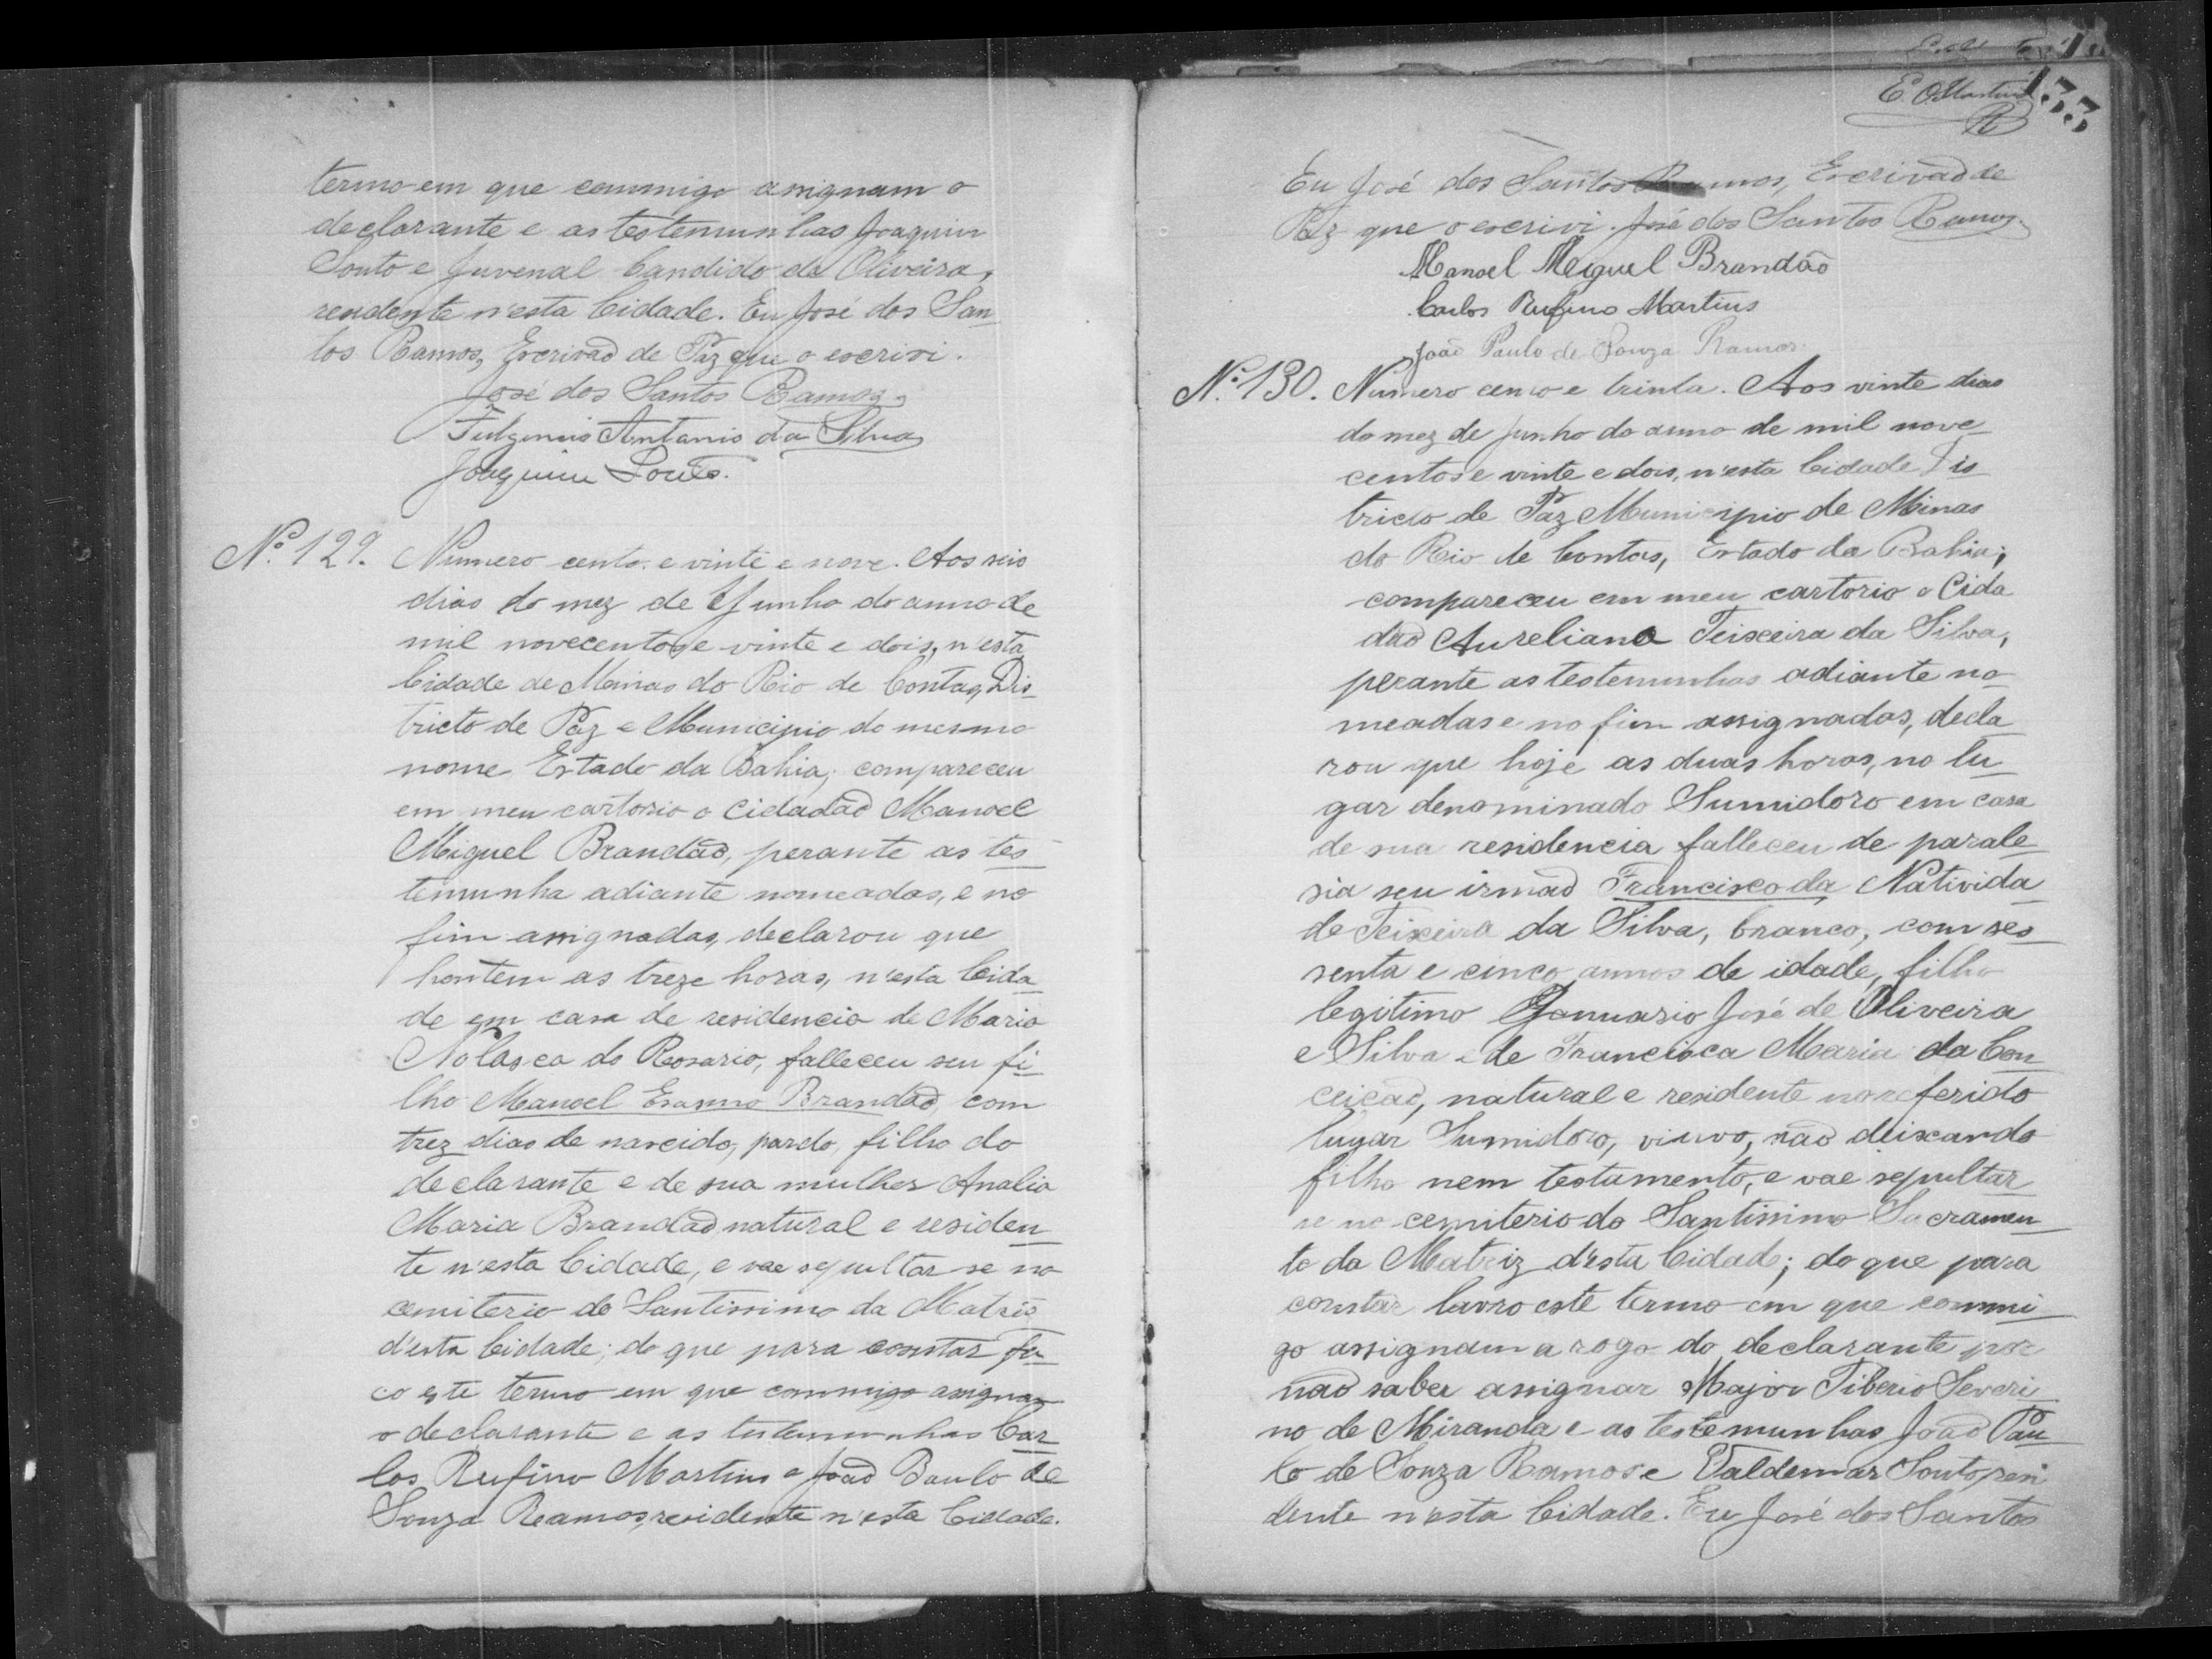 termo em que commigo assignam o
declarante e as testemunhas Joaquim
Souto e Juvenal Candido da Oliveira,
residente n'esta Cidade. Eu José dos San
tos Ramos, Escrivaõ de Paz que o escrivi.
José dos Santos Ramos
Fulgencio Antonio da Silva
Joaquim Souto.
Nº 129. Numero cento e vinte e nove. Aos seis
dias do mez de Junho do anno de
mil novecentos e vinte e dois, n'esta
Cidade de Minas do Rio de Contas, Dis
tricto de Paz e Municipio do mesmo
nome Estado da Bahia; compareceu
em meu cartorio o Cidadaõ Manoel
Miguel Brandaõ, perante as tes
temunha adiante nomeadas, e no
fim assignadas, declarou que
hontem as treze horas, n'esta Cida
de em casa de residencia de Maria
Nolasca do Rosario, falleceu seu fi
lho Manoel Erasmo Brandaõ, com
trez dias de nascido, pardo, filho do
declarante e de sua mulher Analia
Maria Brandaõ natural e residen
te n'esta Cidade, e vae sepultar se no
cemiterio do Santissimo da Matris
d'esta Cidade; do que para constar fa
co este termo em que commigo assignam
o declarante e as testemunhas Car
los Rufino Martins e Joaõ Paulo de
Souza Ramos, residente n'esta Cidade.
E. O. Martins
133
Eu José dos Santos Ramos, Escrivaõ de
Paz que o escrivi. José dos Santos Ramos.
Manoel Miguel Brandão
Carlos Rufino Martins
Joaõ Paulo de Souza Ramos.
Nº 130. Numero cento e trinta. Aos vinte dias
do mez de Junho do anno de mil nove
centos e vinte e dois, n'esta Cidade Dis
tricto de Paz Municipio de Minas
do Rio de Contas, Estado da Bahia;
compareceu em meu cartorio o Cida
daõ Aureliano Teixeira da Silva,
perante as testemunhas adiante no
meadas e no fim assignadas, decla
rou que hoje as duas horas, no lu
gar denominado Sumidoro em casa
de sua residencia falleceu de parale
sia seu irmaõ Francisco da Nativida
de Teixeira da Silva, branco, com ses
senta e cinco annos de idade, filho
legitimo Januario José de Oliveira
e Silva e de Francisca Maria da Con
ceiçaõ, natural e residente no referido
lugar Sumidoro, viuvo, naõ deixando
filho nem testamento, e vae sepultar
se no cemiterio do Santissimo Sacramen
to da Matriz d'esta Cidade; do que para
constar lavro este termo em que commi
go assignam a rogo do declarante por
naõ saber assignar Major Tiberio Severi
no de Miranda e as testemunhas Joaõ Pau
lo de Souza Ramos e Valdemar Souto, resi
dente n'esta Cidade. Eu José dos Santos